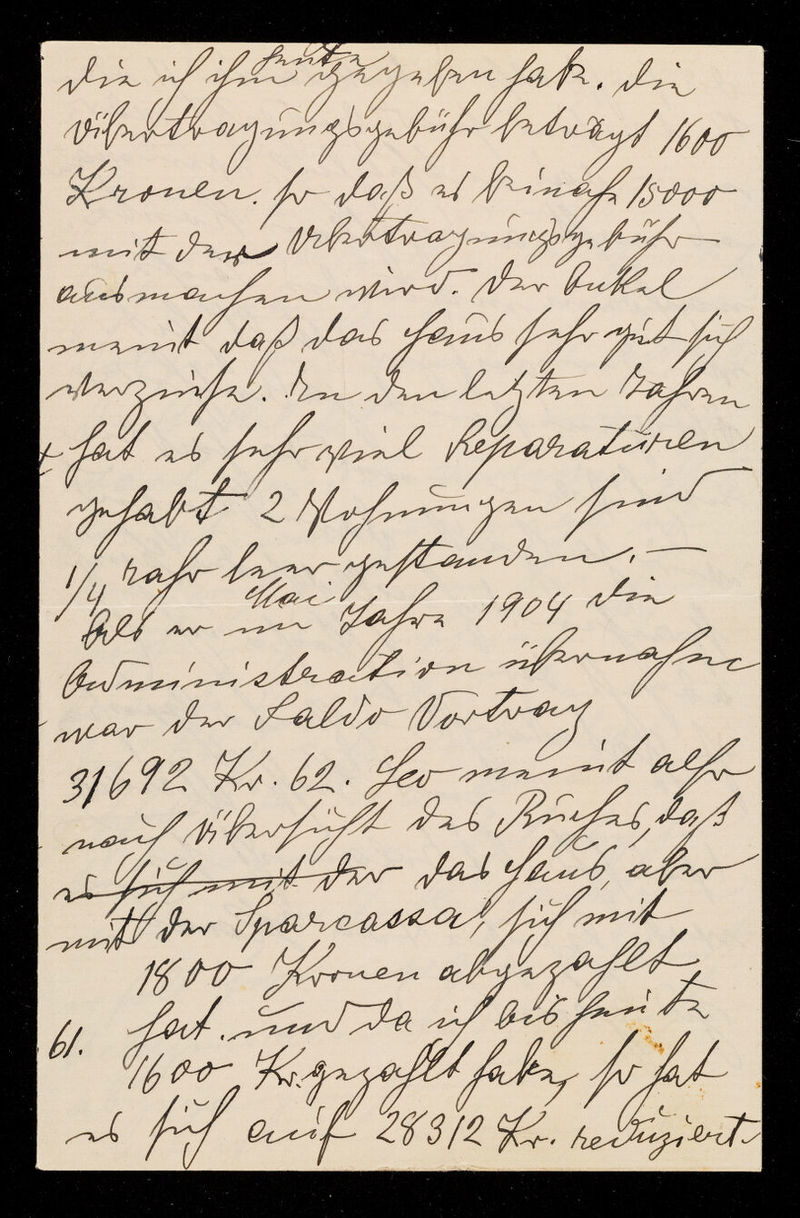 heute
die ich ihm gegeben habe. die
Übertragungsgebühr beträgt 1600
Kronen. so daß es beinahe 15000
mit der Übertragungsgebühr
ausmachen wird. der Onkel
meint daß das Haus sehr gut sich
verzinse. In den letzten Jahren
hat es sehr viel Reparaturen
gehabt 2 Wohnungen sind
1/4 Jahr leer gestanden. —
Mai
Als er im Jahre 1904 die
Administration übernahm
war der Saldo Vortrag
31692 Kr. 62. Leo meint also
nach Übersicht des Buches, daß
es sich mit der das Haus, aber
mit der Sparcassa, sich mit
1800 Kronen abgezahlt
61. hat. und da ich bis heute
1600 Kr. gezahlt habe, so hat
es sich auf 28312 Kr. reduziert.